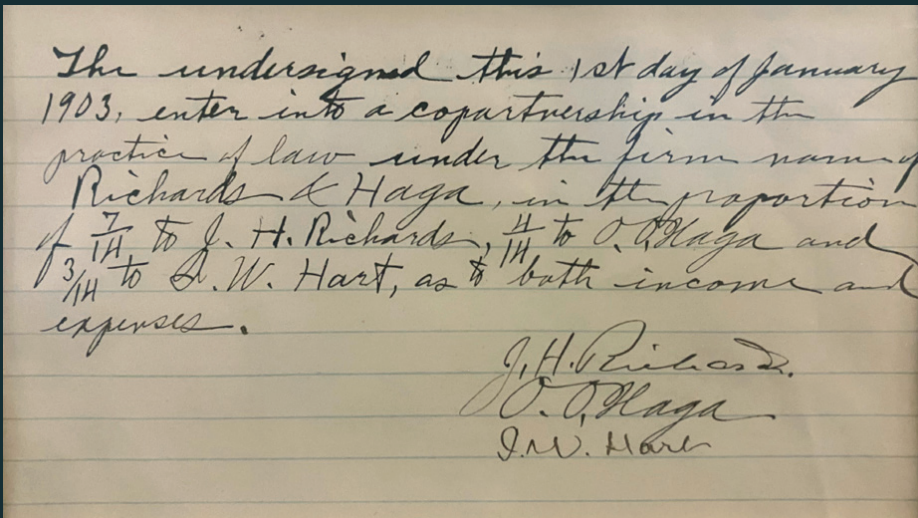 The undersigned this 1st day of January
1903, enter into a copartnership in the
practice of law under the firm name of
Richards & Haga, in the proportion
of 7/14 to J. H. Richards, 4/14 to O. O. Haga and
3/14 to I. W. Hart, as to both income and
expenses.
J. H. Richards.
O. O. Haga
I. W. Hart